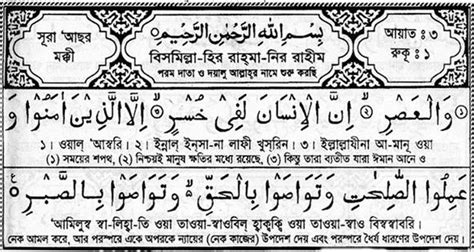 সূরা 'আছর
মক্কী
بِسْمِ اللهِ الرَّحْمٰنِ الرَّحِيْمِ
বিসমিল্লা-হির রাহ্‌মা-নির রাহীম
পরম দাতা ও দয়ালু আল্লাহ্‌র নামে শুরু করছি
আয়াত : ৩
রুকূ : ১
وَالْعَصْرِ ۝ اِنَّ الْاِنْسَانَ لَفِيْ خُسْرٍ ۝ اِلَّا الَّذِيْنَ اٰمَنُوْا وَ
১। ওয়াল্ 'আস্বরি। ২। ইন্নাল্ ইন্‌সা-না লাফী খুস্‌রিন্। ৩। ইল্লাল্লাযীনা আ-মানূ ওয়া
(১) সময়ের শপথ, (২) নিশ্চয়ই মানুষ ক্ষতির মধ্যে রয়েছে, (৩) কিন্তু তারা ব্যতীত যারা ঈমান আনে ও
عَمِلُوا الصّٰلِحٰتِ وَتَوَاصَوْا بِالْحَقِّ ۙ وَتَوَاصَوْا بِالصَّبْرِ ۝
'আমিলুস্ স্বা-লিহা-তি ওয়া তাওয়া-স্বাওবিল্ হাক্বক্বি ওয়া তাওয়া-স্বাও বিস্বস্বাব্‌রি।
নেক আমল করে, আর পরস্পরে একে অপরকে ন্যায়ের (নেক কাজের) উপদেশ দেয় এবং পরস্পরে ধৈর্য ধারনের উপদেশ দেয়।